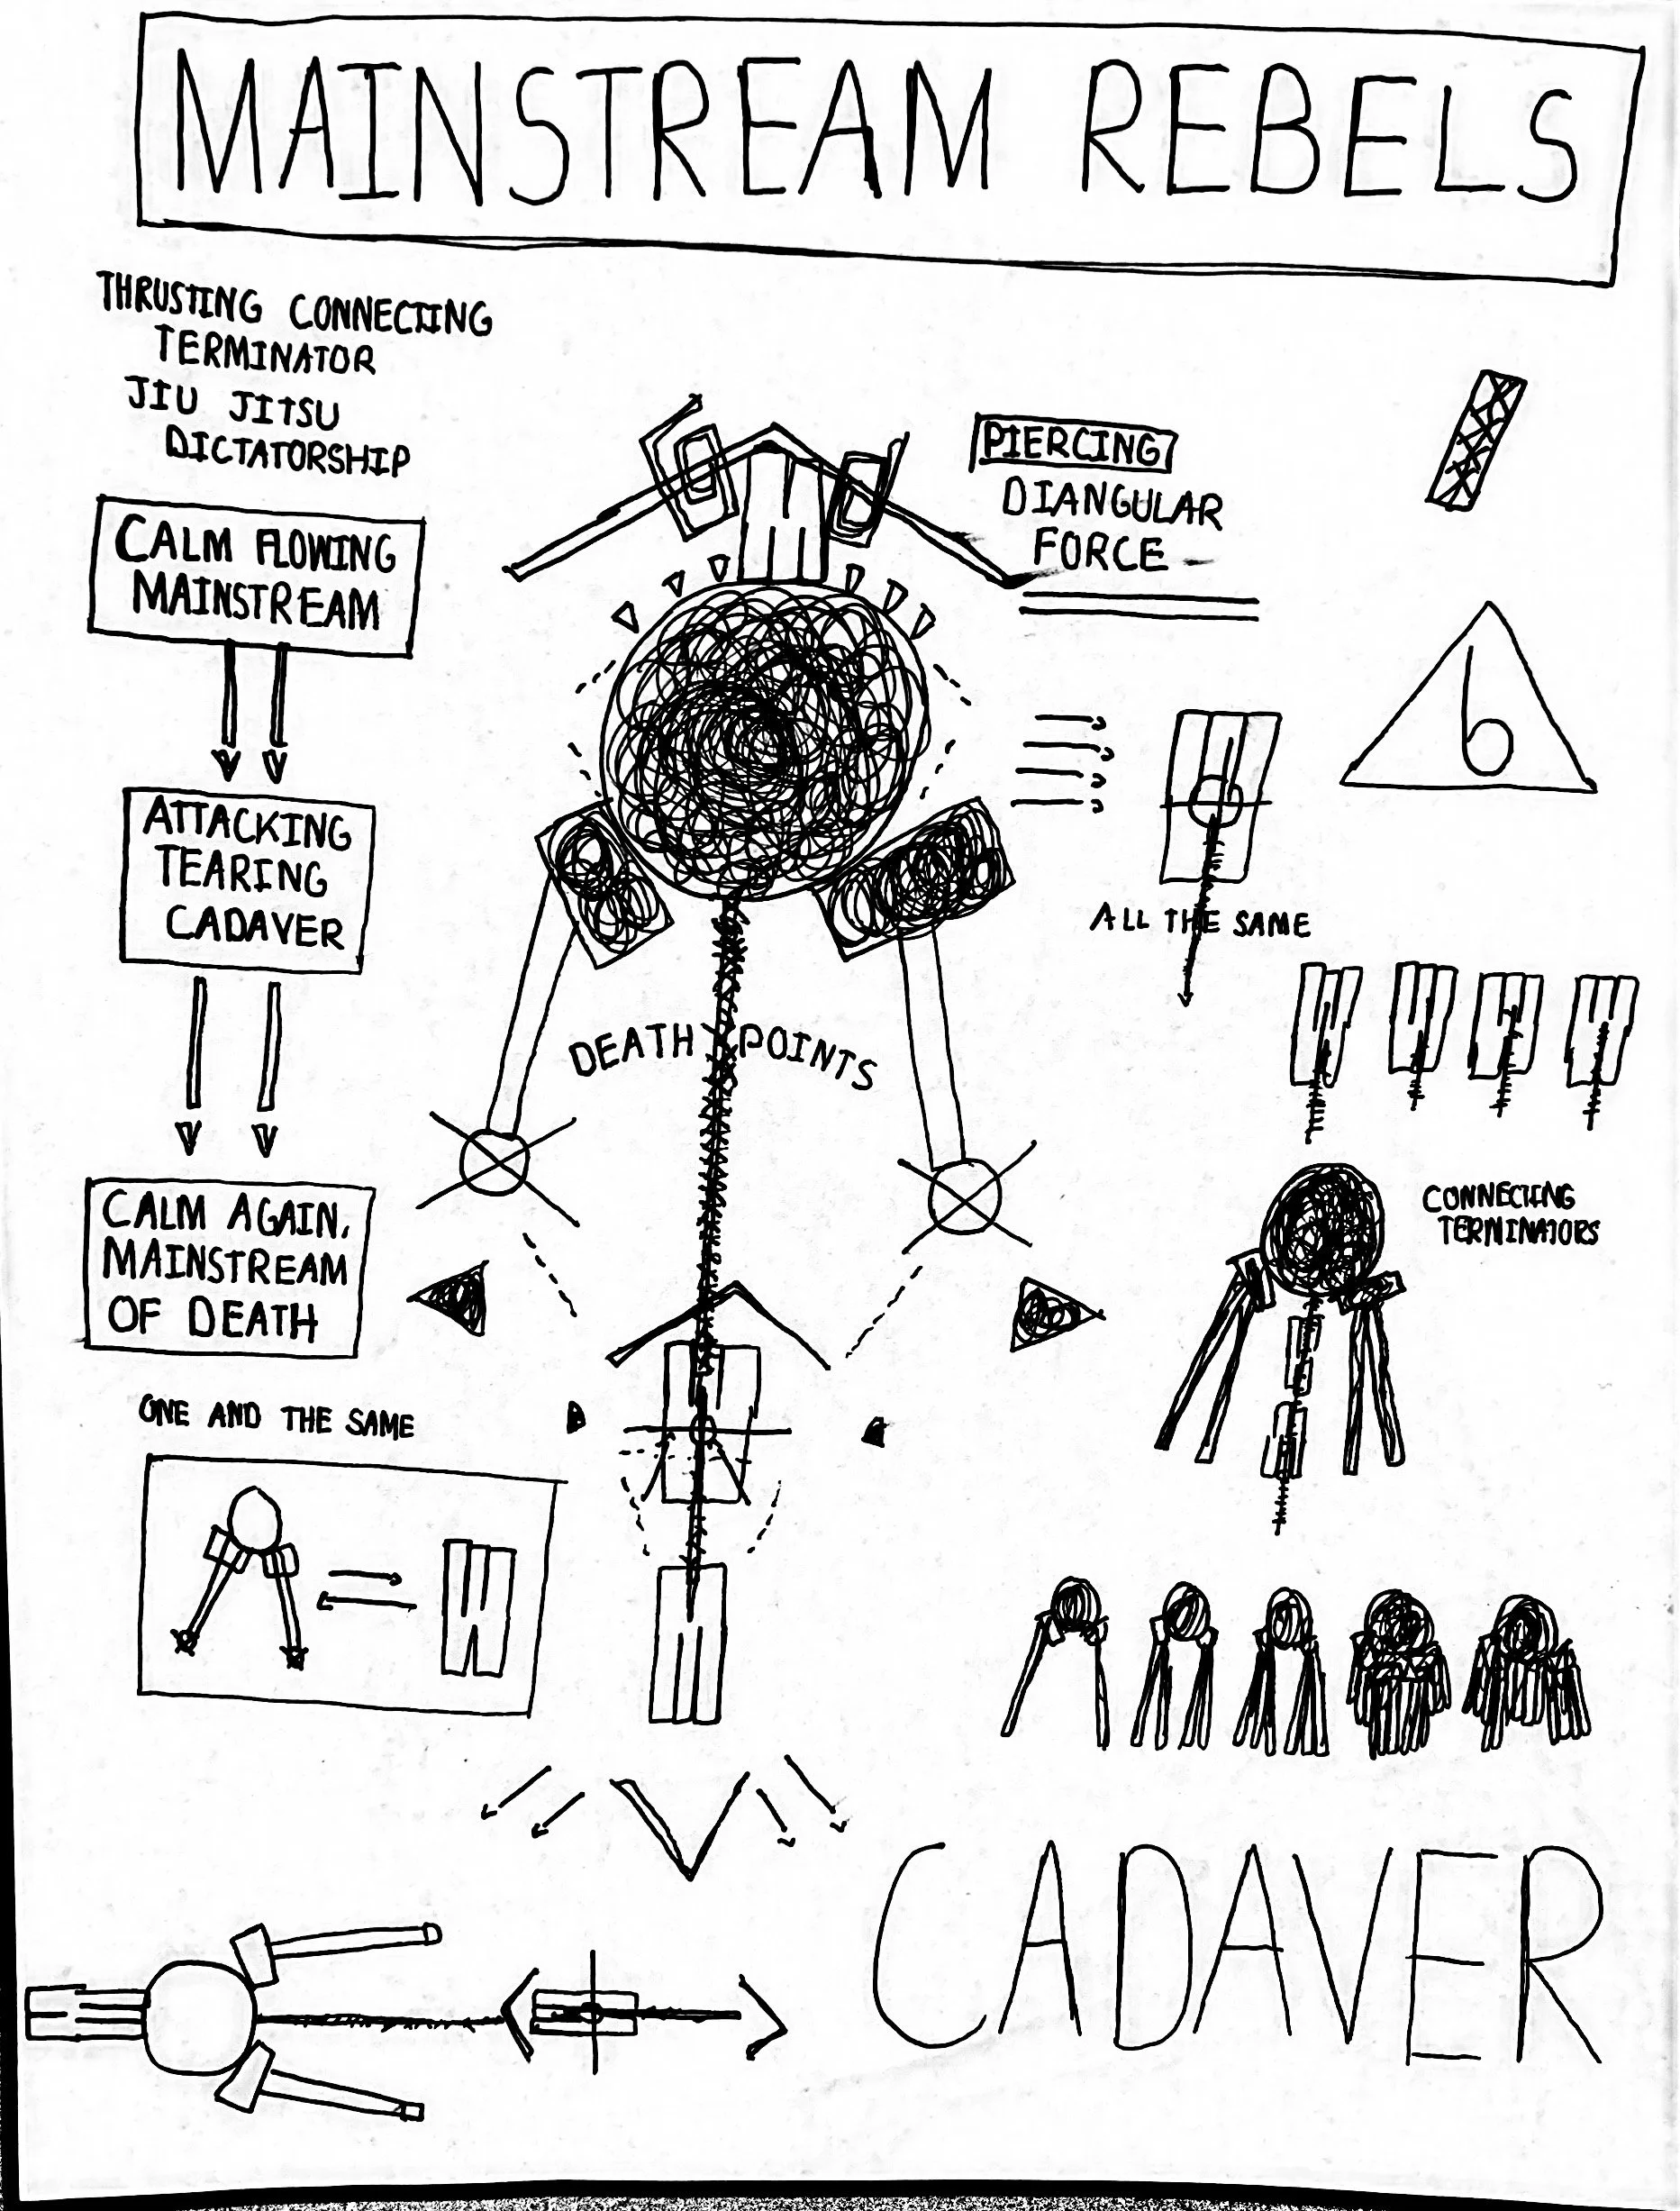 MAINSTREAM REBELS
THRUSTING CONNECTING
TERMINATOR
JIU JITSU
DICTATORSHIP
CALM FLOWING
MAINSTREAM
ATTACKING
TEARING
CADAVER
CALM AGAIN,
MAINSTREAM
OF DEATH
ONE AND THE SAME
PIERCING
DIANGULAR
FORCE
6
ALL THE SAME
DEATH POINTS
CONNECTING
TERMINATORS
CADAVER